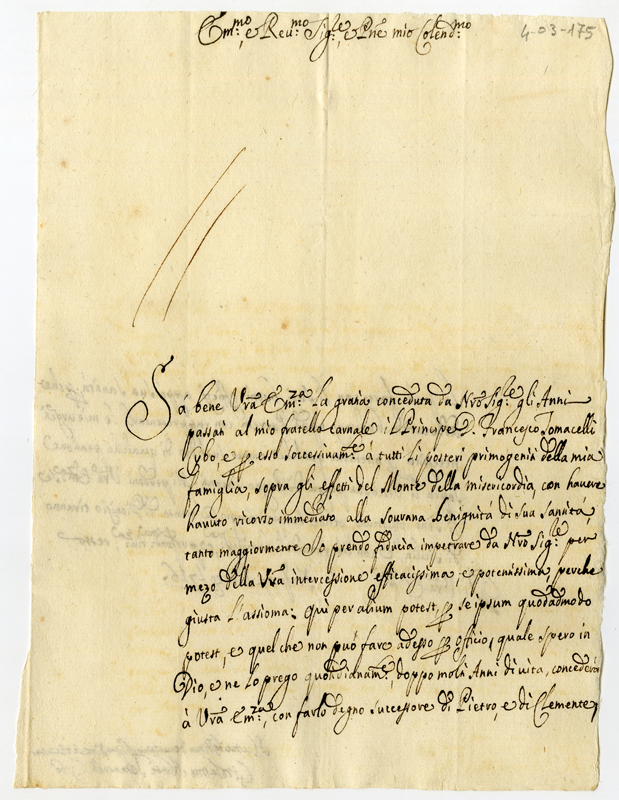 Em.mo, e Reu.mo Sig.re, e Pñe mio Colend.mo
4-03-175
Sá bene Vrã Em.za la grazia conceduta da Nrõ Sig.re gli Anni
passati al mio fratello carnale il Principe D. Francesco Tomacelli
Cybo, e p esso successivam.e à tutti li posteri primogeniti della mia
famiglia, sopra gli effetti del Monte della misericordia, con havere
havuto ricorso immediato alla sourana benignità di Sua Santità,
tanto maggiormente Io prendo fiducia impetrare da Nrõ Sig.re per
mezo della Vrã intercessione efficacissima, e potentissima, perche
giusta l'assioma: qui per alium potest, p se ipsum quodãmodo
potest, e quel che non può fare adesso p officio, quale spero in
Dio, e ne lo prego quotidianam.e, doppo molti Anni di vita, concederà
à Vrã Em.za, con farlo degno successore di Pietro, e di Clemente,